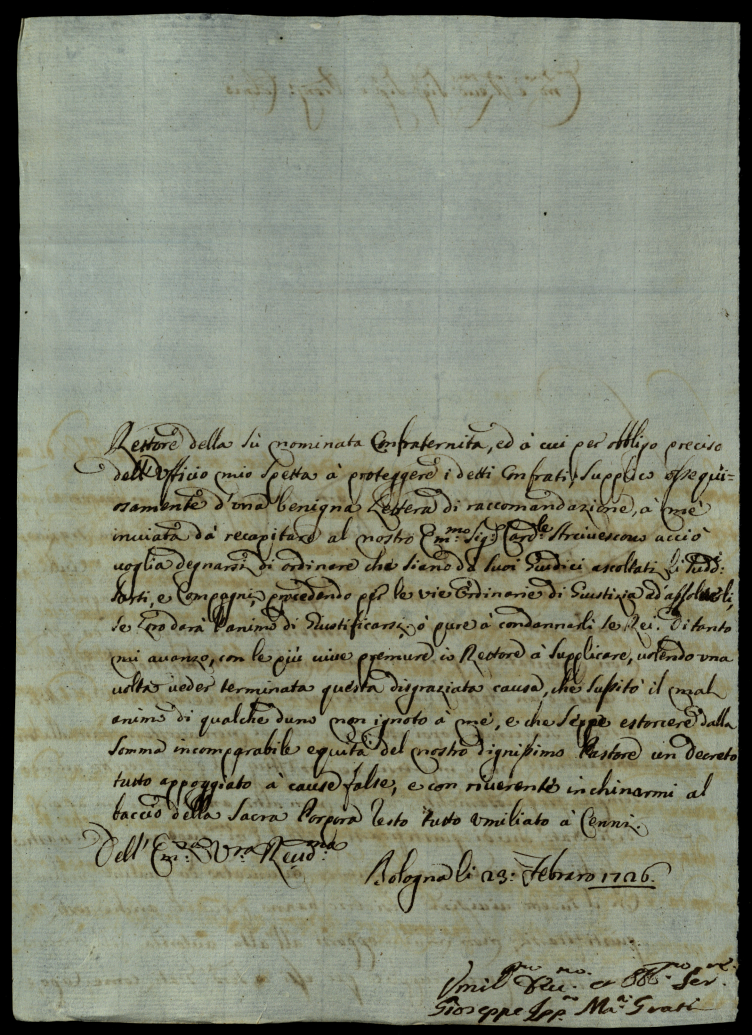 Rettore della sù nominata Confraternita, ed à cui per obbligo preciso
dell'Ufficio mio spetta à proteggere i detti Confrati, Supplico ossequi=
osamente d'una benigna Lettera di raccomandazione, à me
inviata dà recapitare al nostro Em:mo Sig:r Card:le Arcivescouo acciò
voglia degnarsi di ordinare che sieno da Suoi Giudici ascoltati li Sudd:
Sarti, e Compagni, procedendo per le vie Ordinarie di Giustizia ad assoluerli,
se gli darà l'animo di Giustificarsi, ò pure à condannarli se Rei. Di tanto
mi auanzo, con le più uiue premure io Rettore à Supplicare, uolendo una
uolta ueder terminata questa disgraziata causa, che suscitò il mal
animo di qualche duno non ignoto à me, e che seppe estorcere dalla
Somma incomparabile equità del nostro dignissimo Pastore un decreto
tutto appoggiato à cause false, e con riuerente inchinarmi al
baccio della Sacra Porpora resto tutto umiliato à Cenni.
Dell'Em:za V:ra Reud:ma
Bologna li 23: Febraro 1726.
Umil:mo Deu:mo et Obb:mo Ser:re
Gioseppe Ipp:to Ma:a Grati